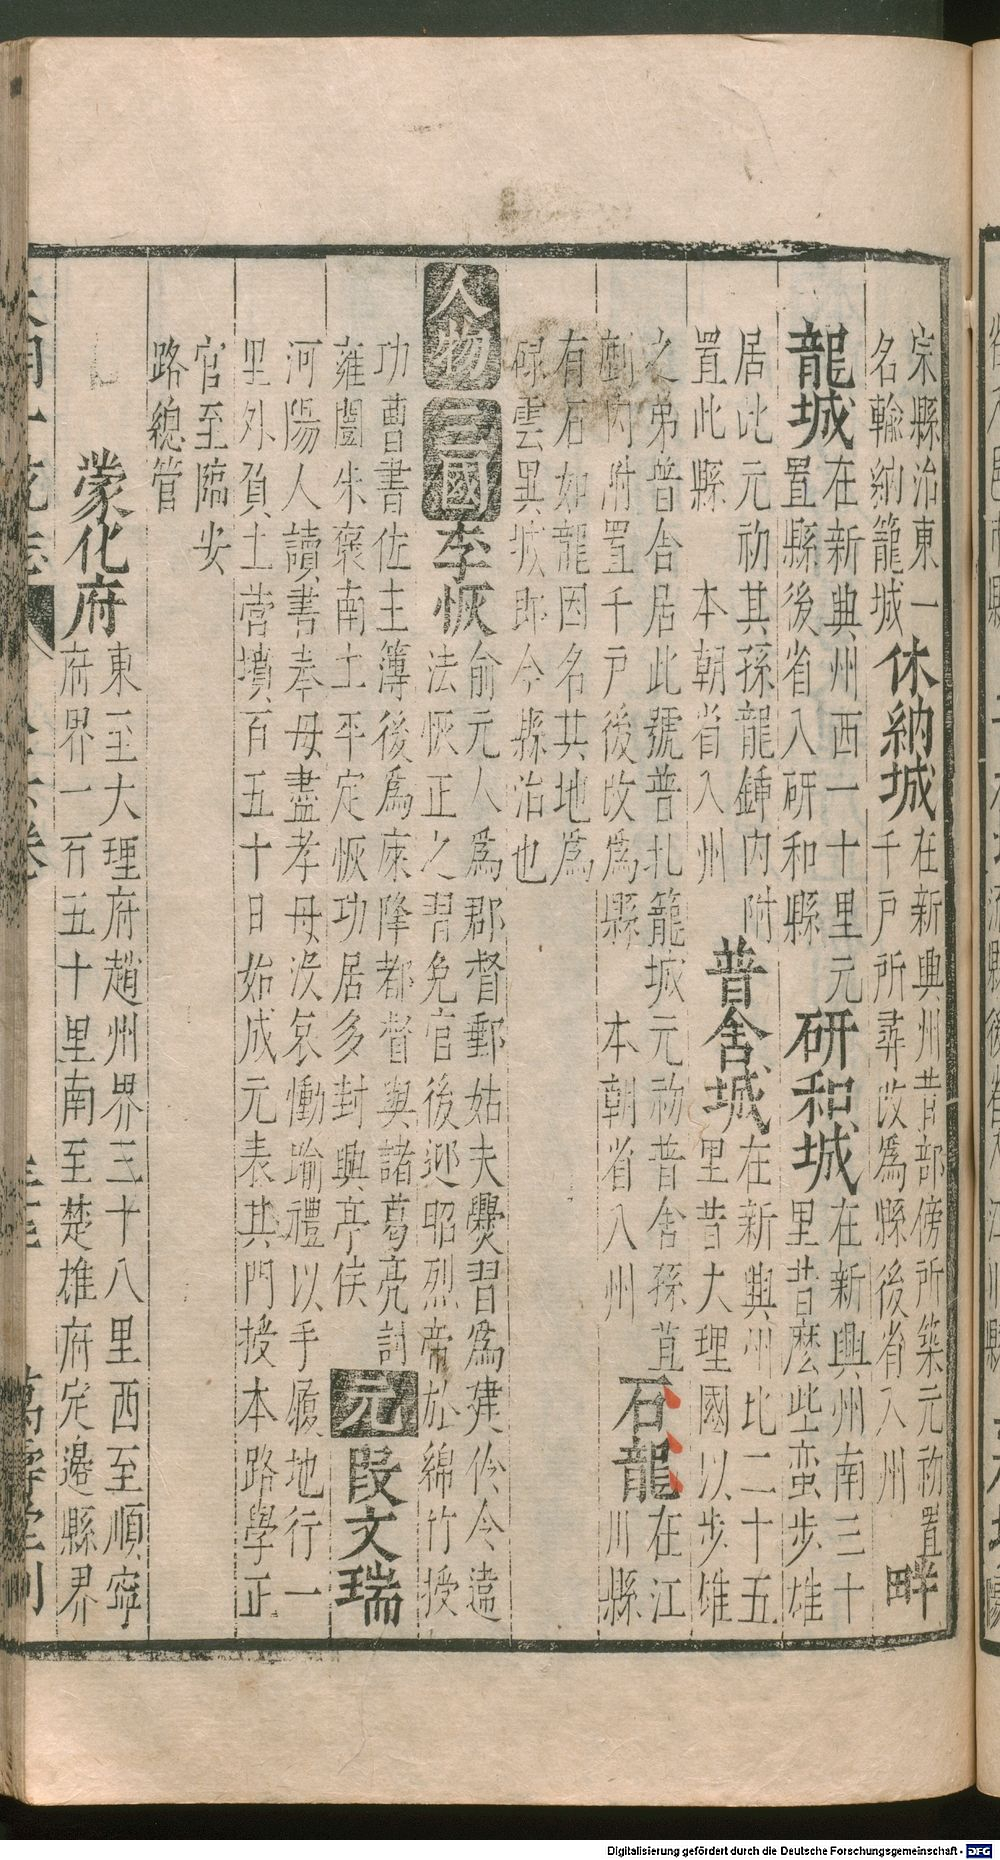 宗縣治東一
名輸納籠城
休納城
在新興州昔部傍所築元初置
千戸所尋改爲縣後省入州
畔
龍城
在新興州西一十里元
置縣後省入研和縣
研和城
在新興州南三十
里昔麽些蛮步雄
居此元初其孫龍鍾内附
置此縣 本朝省入州
普舍城
在新興州北二十五
里昔大理國以步雄
之弟普舍居此號普扎籠城元初普舍孫苴
劃内附置千戸後改爲縣 本朝省入州
石龍
在江
川縣
有石如龍因名其地爲
碌雲異城即今縣治也
人物
三國
李恢
俞元人爲郡督郵姑夫爨習爲建伶令違
法恢正之習免官後迎昭烈帝於綿竹授
功曹書佐主簿後爲庲降都督與諸葛亮討
雍闓朱褒南土平定恢功居多封興亭侯
元
段文瑞
河陽人讀書奉母盡孝母没哀慟踰禮以手履地行一
里外負土營墳百五十日始成元表其門授本路學正
官至臨安
路總管
蒙化府
東至大理府趙州界三十八里西至順寧
府界一百五十里南至楚雄府定邊縣界